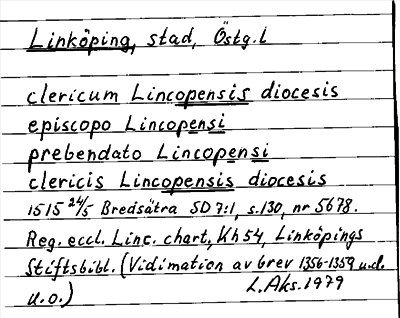 Linköping, stad, Östg.l
clericum Lincopensis diocesis
episcopo Lincopensi
prebendato Lincopensi
clericis Lincopensis diocesis
1515 24/5 Bredsätra SD 7:1, s.130, nr 5678.
Reg. eccl. Linc. chart, Kh 54, Linköpings
Stiftsbibl. (Vidimation av brev 1356-1359 u.d.
u.o.) L.Aks. 1979